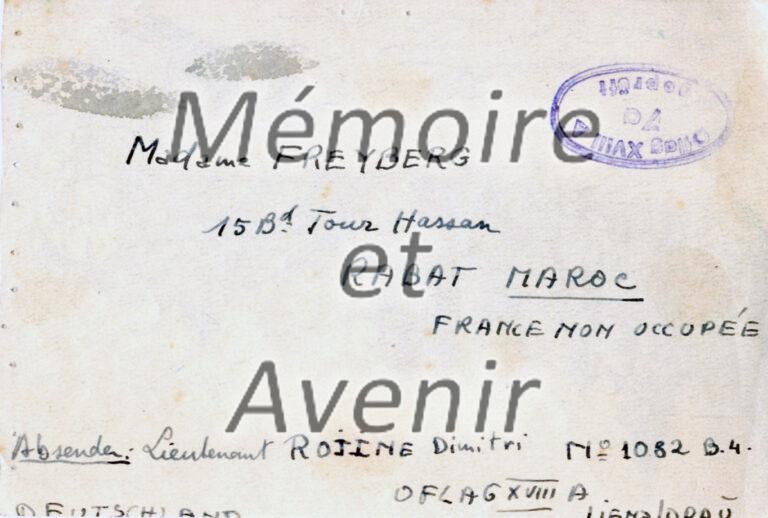 Mémoire
et
Avenir
Oflag XVIII A
70
geprüft
Madame FREYBERG
15 Bd Tour Hassan
RABAT MAROC
FRANCE NON OCCUPÉE
Absender: Lieutenant ROJINE Dimitri Nº 1082 B.4.
OFLAG XVIII A
DEUTSCHLAND LIENZ/DRAU